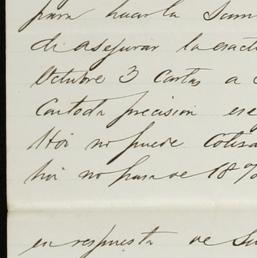 para hacer la
de asegurar la exact
Octubre 3 Cartas a
Con toda precision ese
Hoi no puede Cotisa
hoi no pasa de 18%
en respuesta de Su